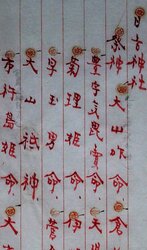 日吉神社
祭神 大山咋命、倉
豊宇気毘賣命、
菊理姫命、伊
早玉男命、
大山祇神 天
市杵島姫命 大